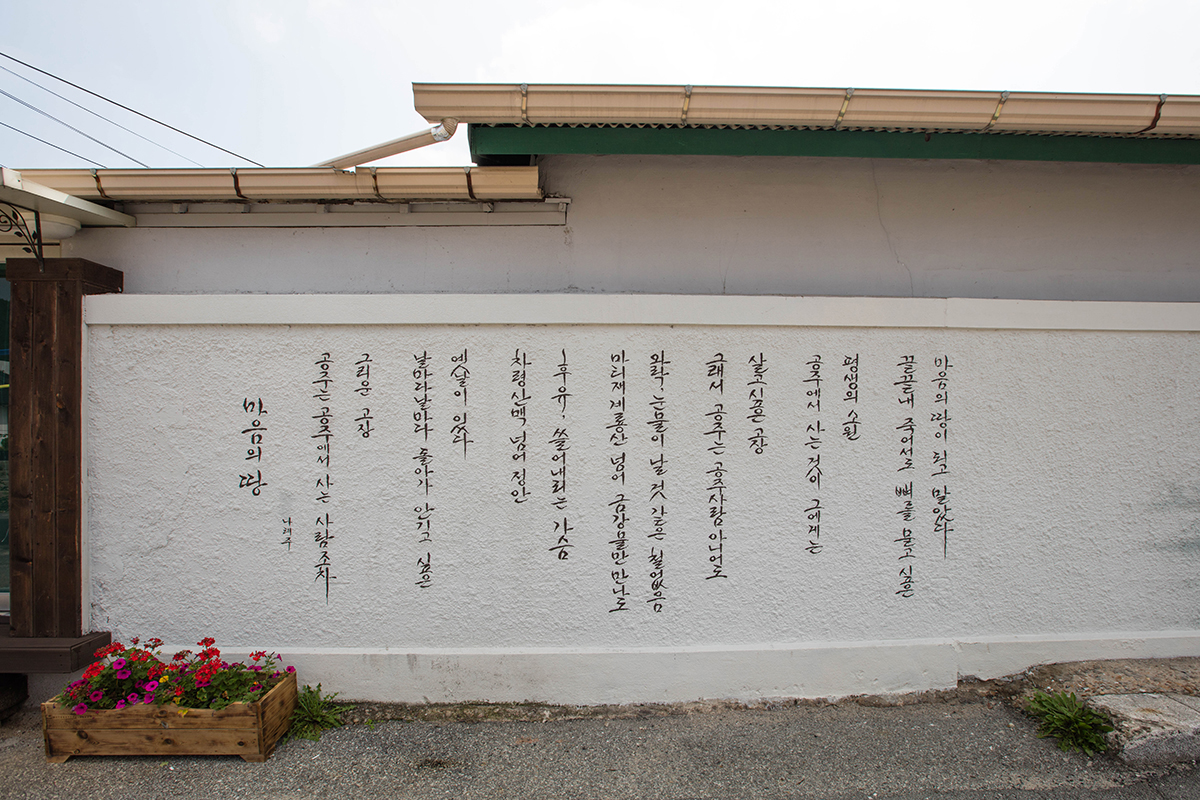 마음의 땅
나태주
공주는 공주에서 사는 사람조차
그리운 고장
날마다날마다 돌아가 안기고 싶은
옛날이 있었다
차령산맥 넘어 정안
후유, 쓸어내리는 가슴
마티재 계룡산 넘어 금강물만 만나도
와락, 눈물이 날 것 같은 철없음
그래서 공주는 공주사람 아니어도
살고싶은 고장
공주에서 사는 것이 그에게는
평생의 소원
끝끝내 죽어서도 뼈를 묻고 싶은
마음의 땅이 되고 말았다